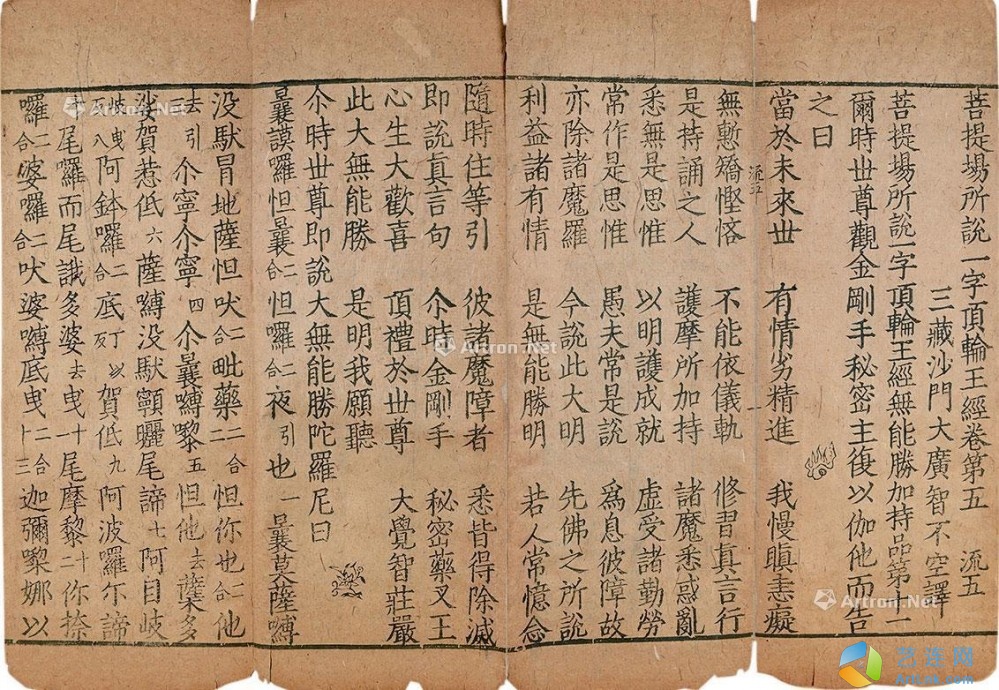 菩提場所說一字頂輪王經卷第五 流五
三藏沙門大廣智不空譯
菩提場所說一字頂輪王經無能勝加持品第十一
爾時世尊觀金剛手秘密主復以伽他而告
之曰
當於未來世 有情劣精進 我慢瞋恚癡
流五
無慙矯慳悋 不能依儀軌 修習真言行
是持誦之人 護摩所加持 諸魔悉惑亂
悉無是思惟 以明護成就 虛受諸勤勞
常作是思惟 愚夫常是說 為息彼障故
亦除諸魔羅 今說此大明 先佛之所說
利益諸有情 是無能勝明 若人常憶念
隨時住等引 彼諸魔障者 悉皆得除滅
即說真言句 尒時金剛手 秘密藥叉王
心生大歡喜 頂禮於世尊 大覺智莊嚴
此大無能勝 是明我願聽
尒時世尊即說大無能勝陀羅尼曰
曩謨囉怛曩二合怛囉二合夜引也一曩莫薩嚩
没馱冒地薩怛吠二合毗藥二合二怛你也二合他
去引尒寧尒寧四尒曩嚩嚟五怛他去蘖多
娑賀惹低六薩嚩没馱曬尾諦七阿目岐
曳八阿鉢囉二合底丁以反賀低九阿波囉尒諦
尾囉而尾誐多婆去曳十一尾摩黎十二你捺
囉二合婆囉二合吠婆嚩底曳二合十三迦彌嚟娜以
Artron.Net
Artron.Net
Artron.Net
艺连网